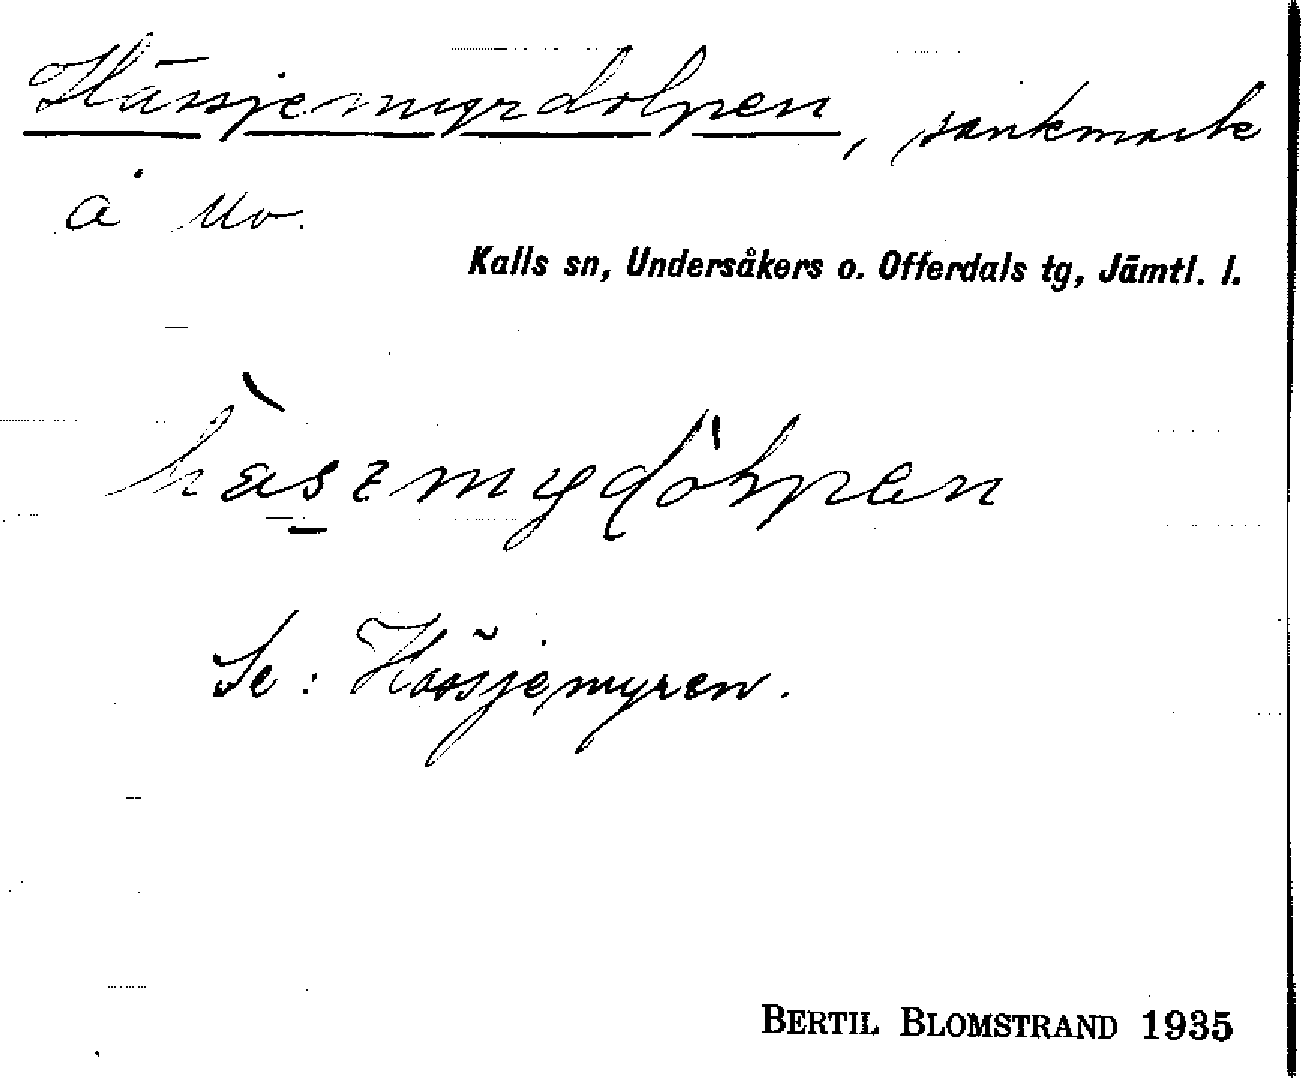 Hässjemyrdolpen, sankmark
å Mo.
Kalls sn, Undersåkers o. Offerdals tg, Jämtl. l.
Se: Hässjemyren.
BERTIL BLOMSTRAND 1935